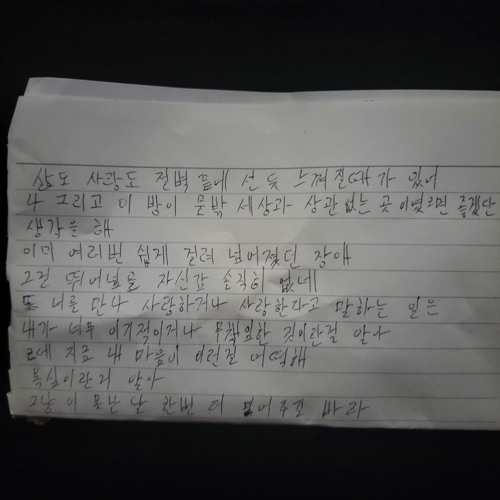 삶도 사랑도 절벽 끝에 선 듯 느껴질때가 있어
나 그리고 이 방이 문밖 세상과 상관없는 곳이였으면 좋겠단
생각을 해
이미 여러번 쉽게 걸려 넘어졌던 장애
그걸 뛰어넘을 자신감 솔직히 없네
또 너를 만나 사랑하거나 사랑한다고 말하는 일은
내가 너무 이기적이거나 무책임한 짓이란걸 알아
근데 지금 내 마음이 이런걸 어떡해
욕심이란거 알아
그냥 이 못난 날 한번 더 믿어주길 바라